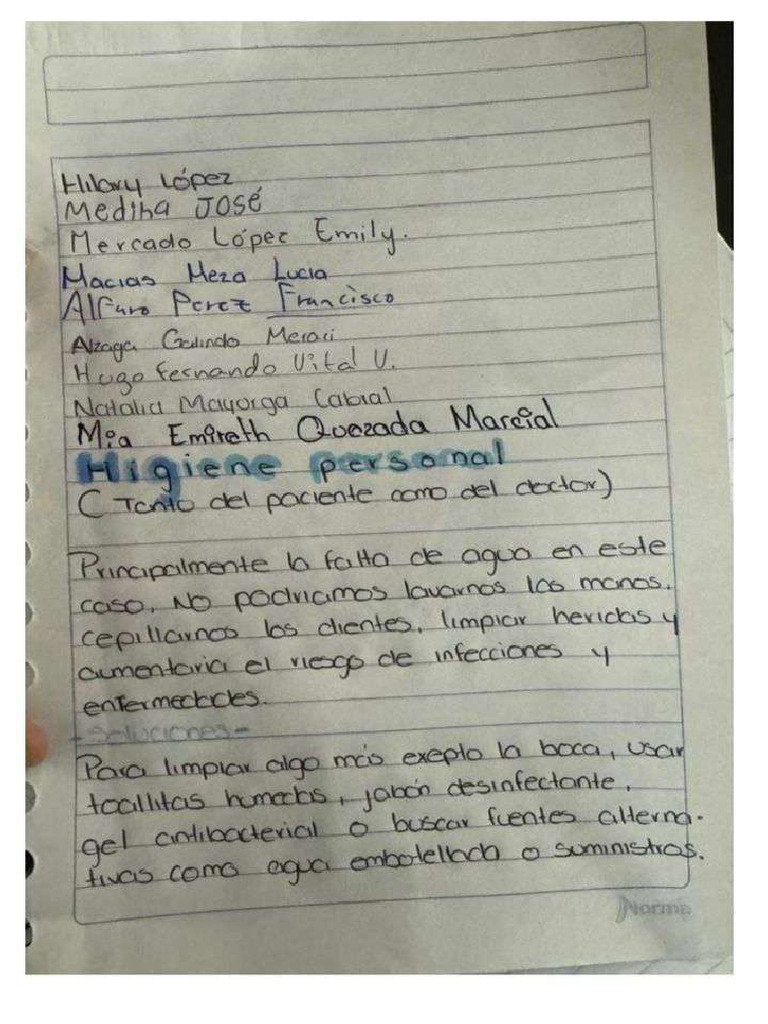 Hilary López
Medina JOSÉ
Mercado López Emily.
Macias Meza Lucia
Alfaro Perez Francisco
Alzaga Galindo Merari
Hugo Fernando Vital V.
Natalia Mayorga Cabral
Mia Emireth Quezada Marcial
Higiene personal
( Tanto del paciente como del doctor)
Principalmente la falta de agua en este
caso, No podriamos lavarnos las manos,
cepillarnos los dientes, limpiar heridas y
aumentaria el riesgo de infecciones y
enfermedades.
-Soluciones-
Para limpiar algo más exepto la boca, usar
toallitas humedas, jabón desinfectante,
gel antibacterial o buscar fuentes alterna-
tivas como agua embotellada o suministros.
Norma